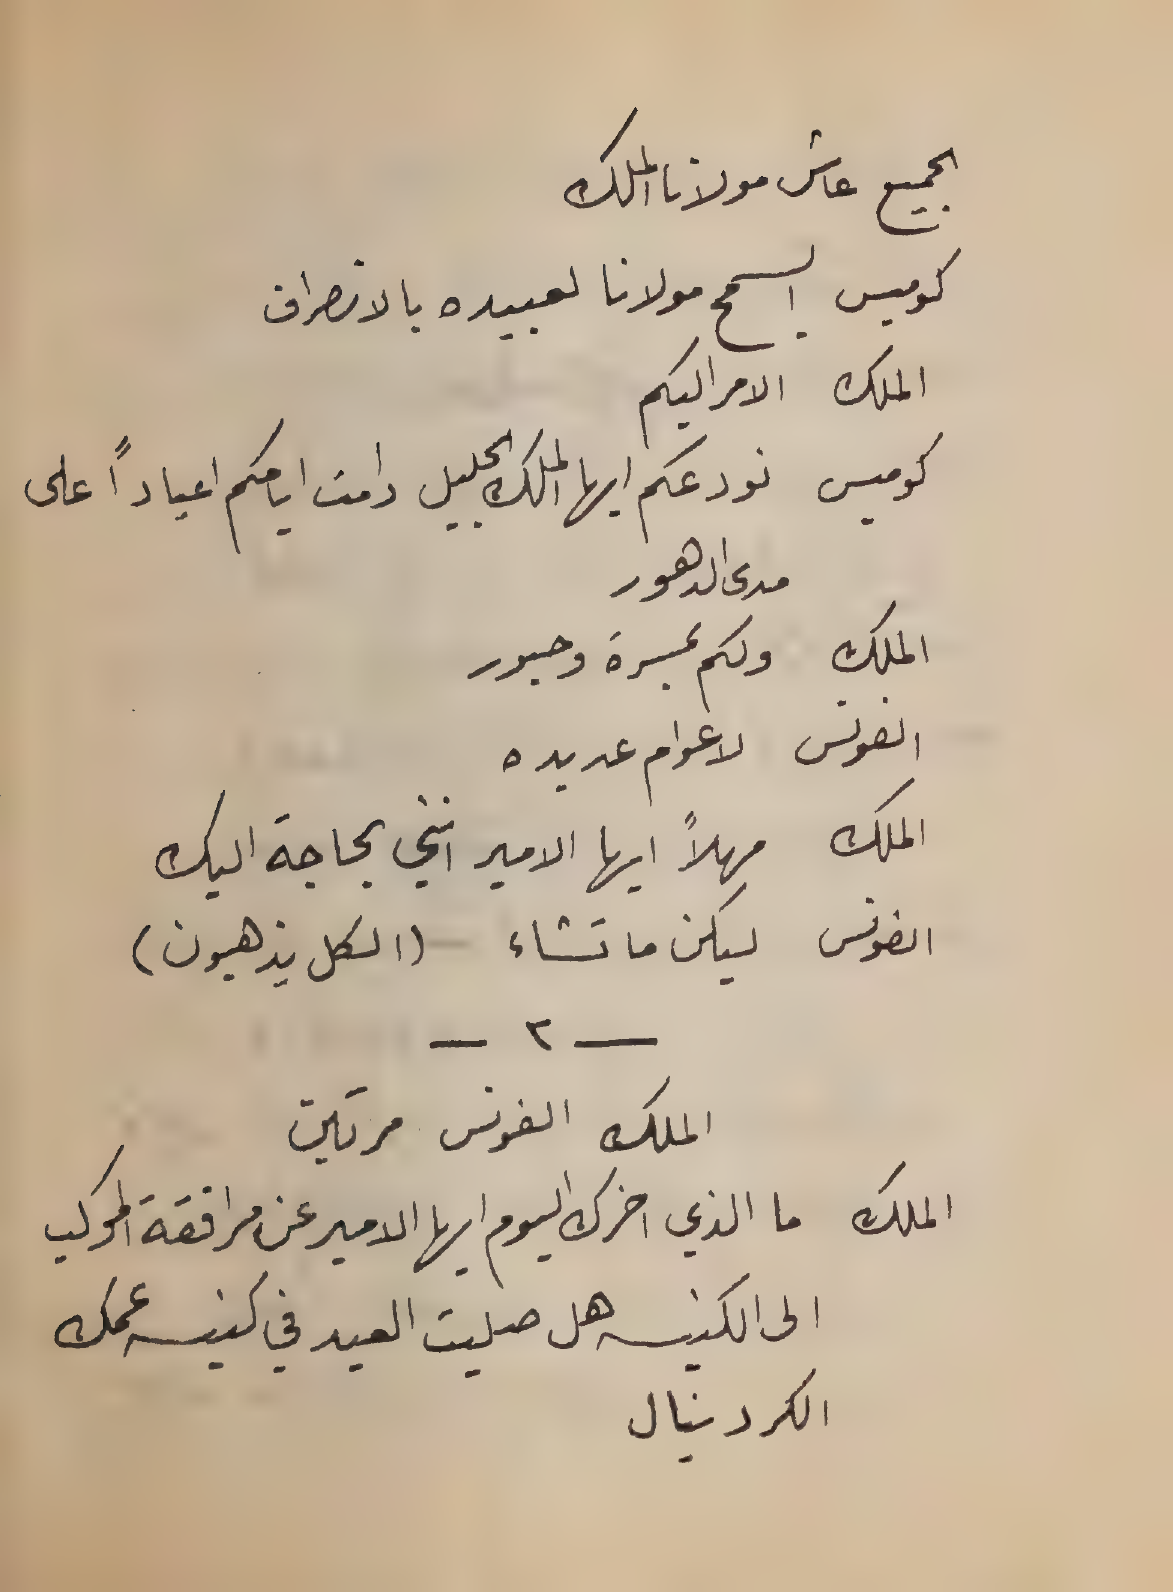 الجميع عاش مولانا الملك
كوميس ايسمح مولانا لعبيده بالانصراف
الملك الامر اليكم
كوميس نودعكم ايها الملك الجليل دامت ايامكم اعياداً على
مدى الدهور
الملك ولكم بمسرة وحبور
الفونس لاعوام عديده
الملك مهلاً ايها الامير انني بحاجة اليك
الفونس ليكن ما تشاء (الكل يذهبون)
— ٢ —
الملك الفونس مرتين
الملك ما الذي اخرك اليوم ايها الامير عن مرافقة الموكب
الى الكنيسه هل صليت العيد في كنيسه عمك
الكردينال